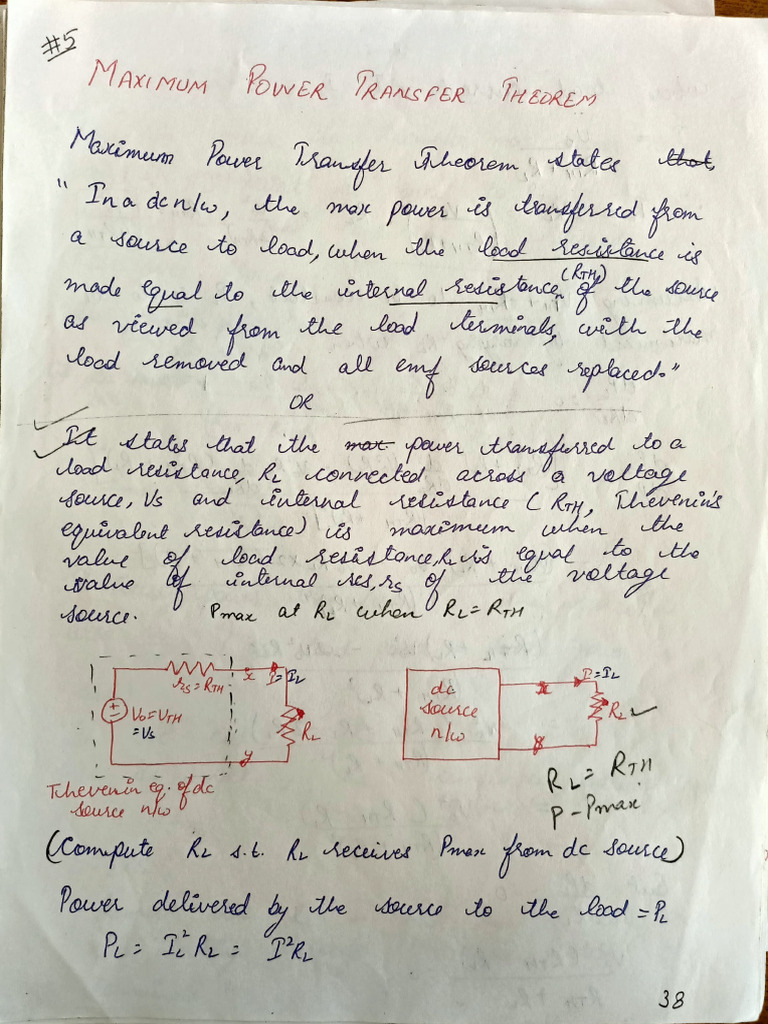 #5
MAXIMUM POWER TRANSFER THEOREM
Maximum Power Transfer Theorem states that,
"In a dc n/w, the max power is transferred from
a source to load, when the load resistance is
made equal to the internal resistance (RTH) of the source
as viewed from the load terminals, with the
load removed and all emf sources replaced."
OR
It states that the max power transferred to a
load resistance, RL connected across a voltage
source, Vs and internal resistance (RTH, Thevenin's
equivalent resistance) is maximum when the
value of load resistance, RL is equal to the
value of internal res, rs of the voltage
source. Pmax at RL when RL = RTH
rs = RTH
x
I = IL
V0 = VTH
= Vs
RL
y
Thevenin eq. of dc
source n/w
dc
source
n/w
x
I = IL
RL
y
RL = RTH
P - Pmax
(Compute RL s.t. RL receives Pmax from dc source)
Power delivered by the source to the load = PL
PL = IL²RL = I²RL
38